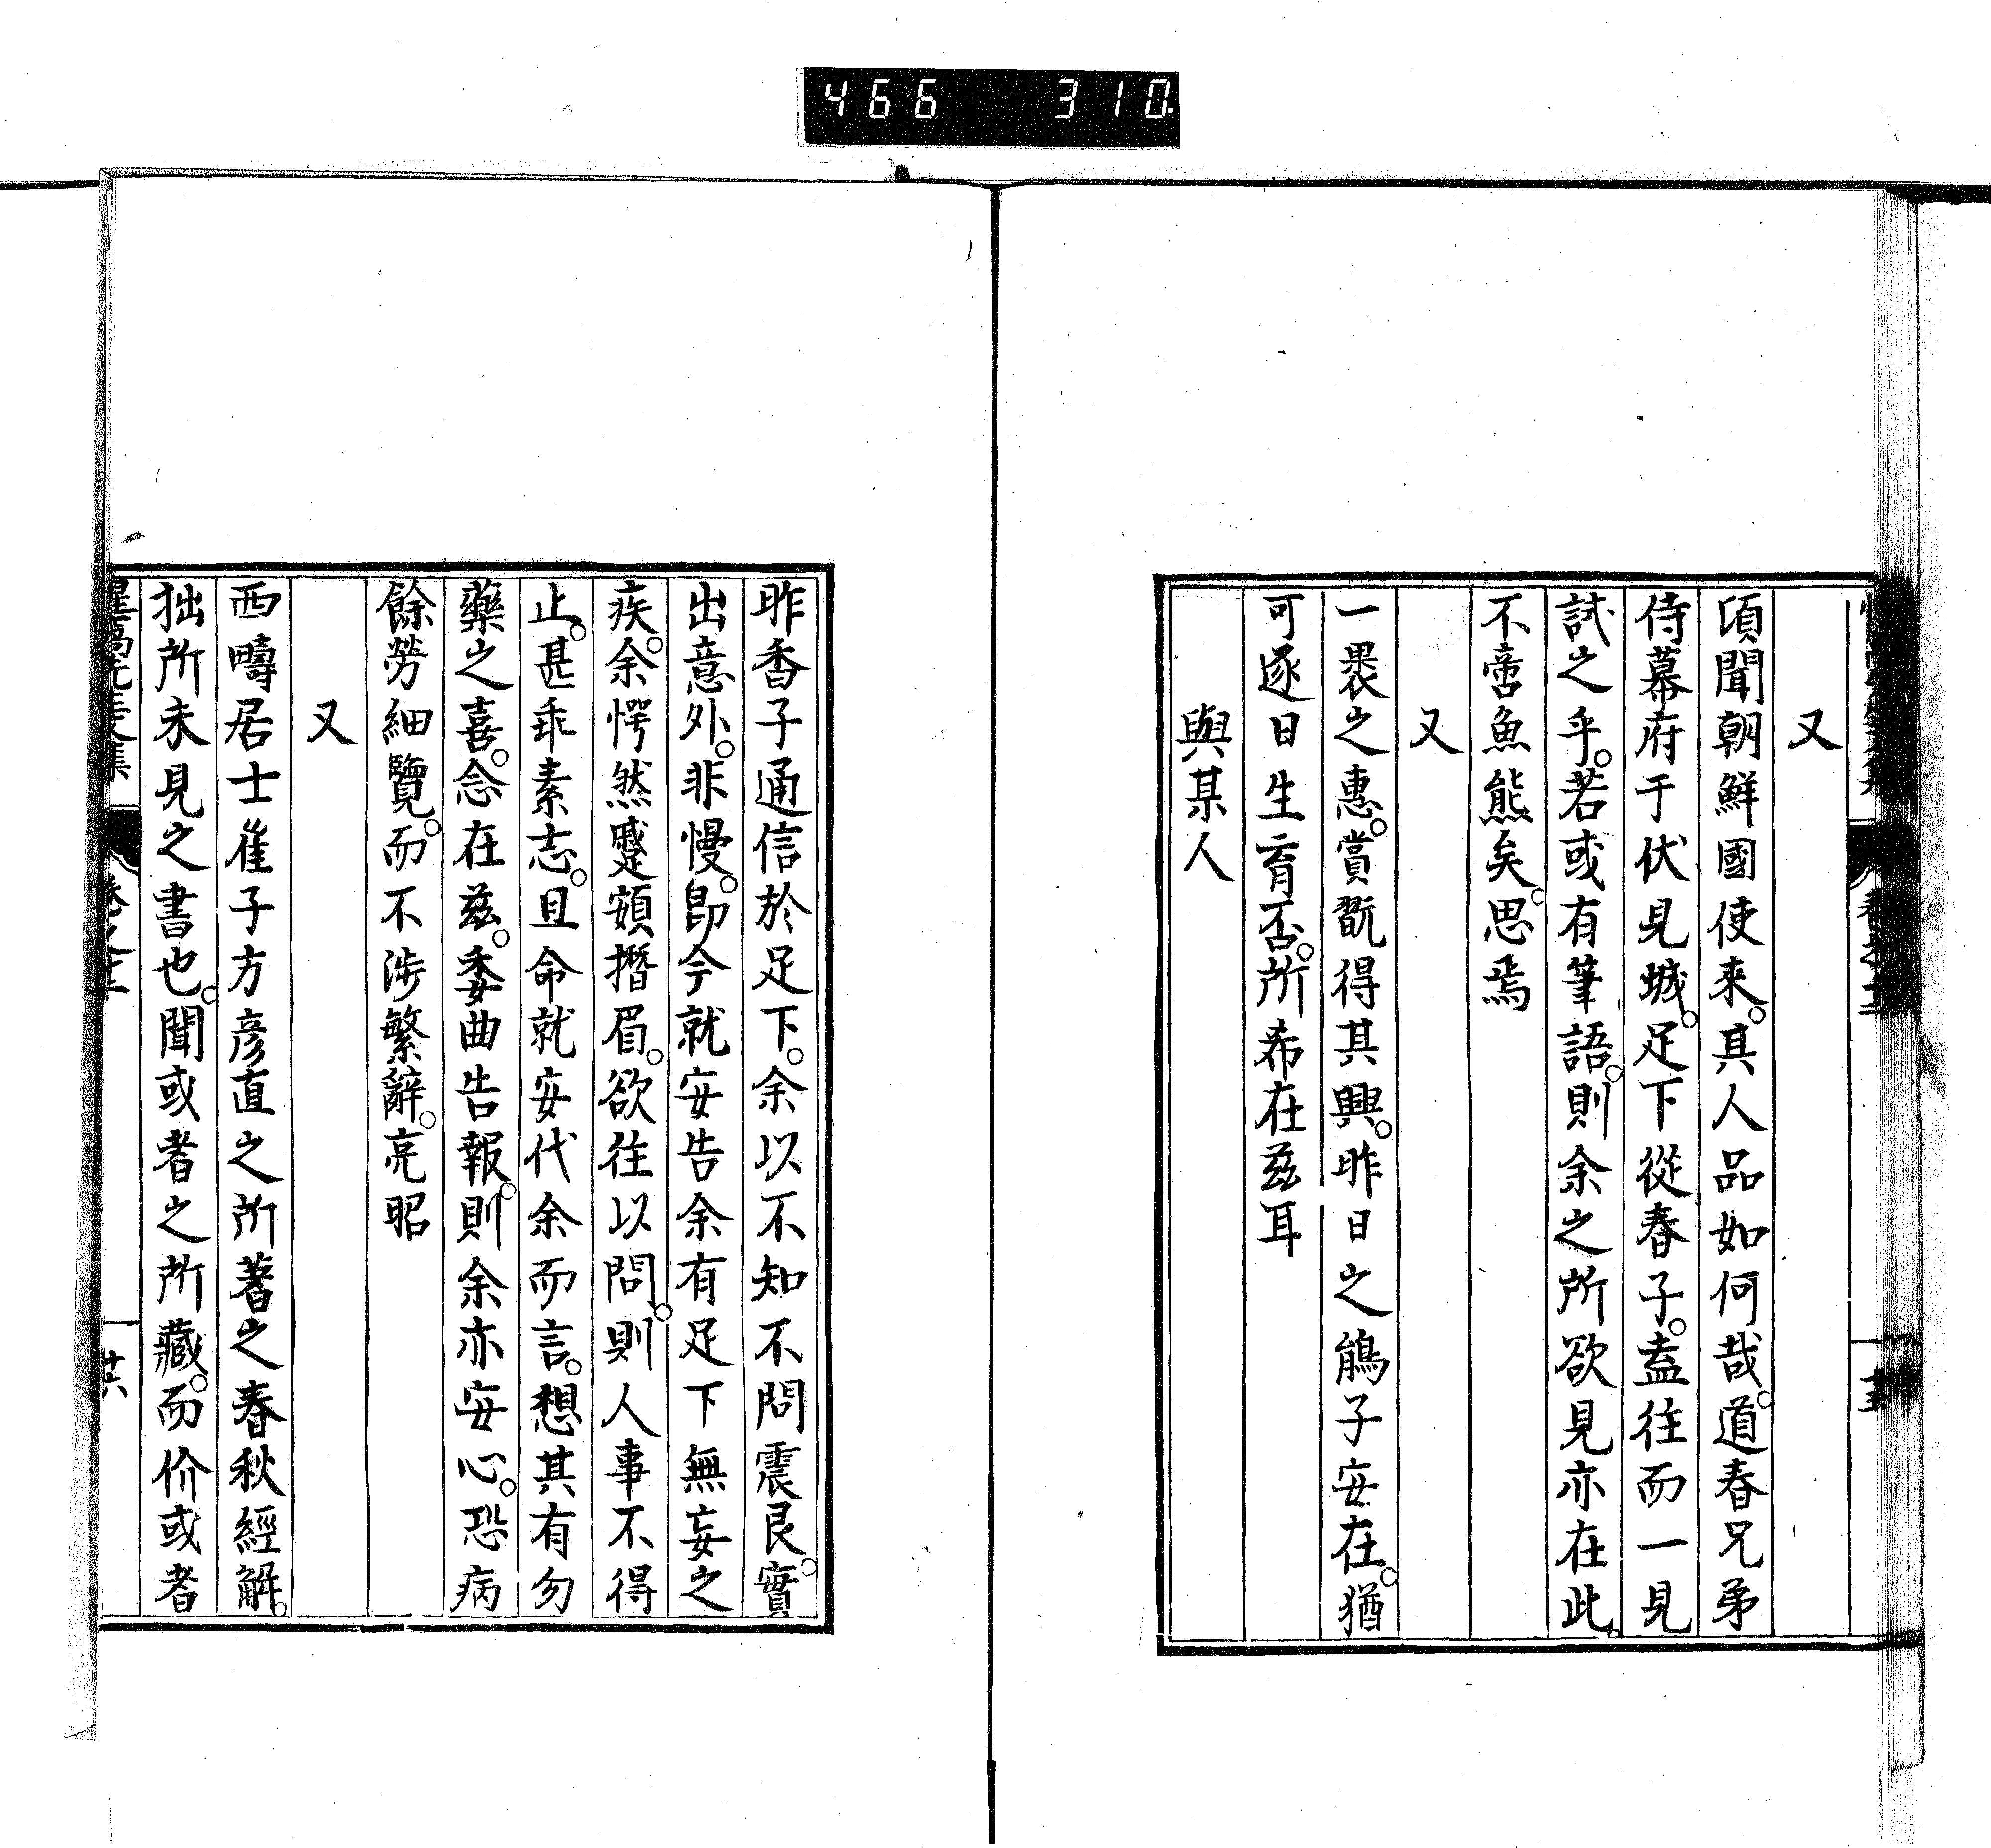 466 310
又
頃聞朝鮮國使來。其人品如何哉。道春兄弟
侍幕府于伏見城。足下從春子。盍往而一見
試之乎。若或有筆語。則余之所欲見亦在此。
不啻魚熊矣。思焉
又
一褁之惠。賞翫得其興。昨日之鵃子安在。猶
可逐日生育否。所希在茲耳
與某人
昨香子通信於足下。余以不知不問震艮。實
出意外。非慢。卽今就安告余有足下無妄之
疾。余愕然蹙頞揩眉。欲往以問。則人事不得
止。甚乖素志。且命就安代余而言。想其有勿
藥之喜。念在茲。委曲告報。則余亦安心。恐病
餘勞細覽。而不涉繁辭。亮昭
又
西疇居士崔子方彥直之所著之春秋經解。
拙所未見之書也。聞或者之所藏。而价或者
惺窩先生文集 卷之十二 十六